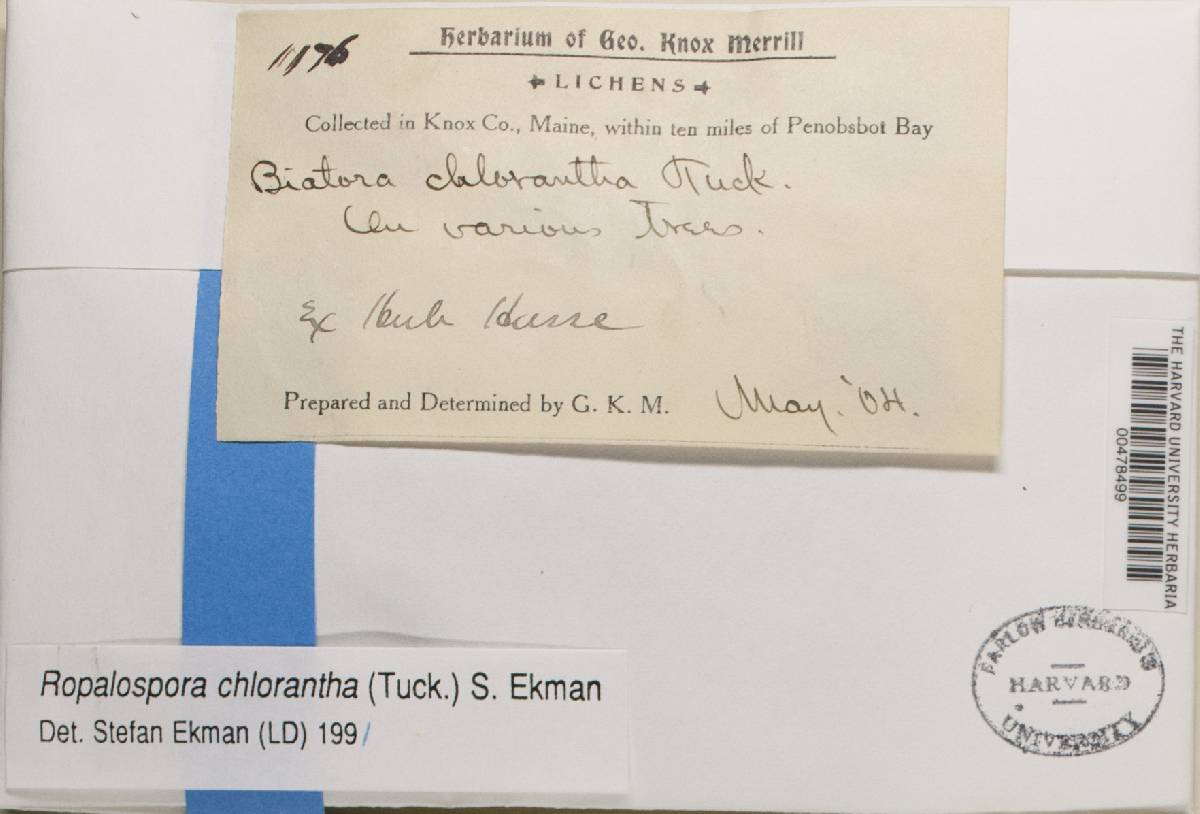 1176
Herbarium of Geo. Knox Merrill
LICHENS
Collected in Knox Co., Maine, within ten miles of Penobsbot Bay
Biatora chlorantha Tuck.
On various Trees.
Ex Herb Hasse
Prepared and Determined by G. K. M. May. '04.
THE HARVARD UNIVERSITY HERBARIA
00478499
FARLOW HERBARIUM
HARVARD
UNIVERSITY
Ropalospora chlorantha (Tuck.) S. Ekman
Det. Stefan Ekman (LD) 1991